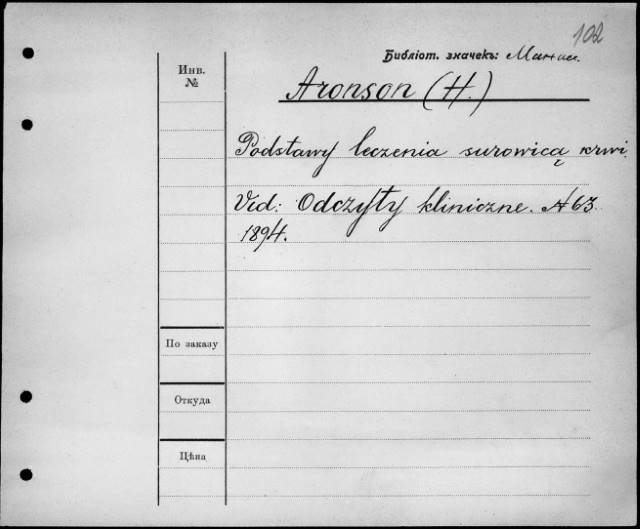 102
Библіот. значекъ:
Инв.
№
Aronson (H.)
Podstawy leczenia surowicą krwi.
Vid: Odczyty kliniczne. № 63.
1894.
По заказу
Откуда
Цѣна